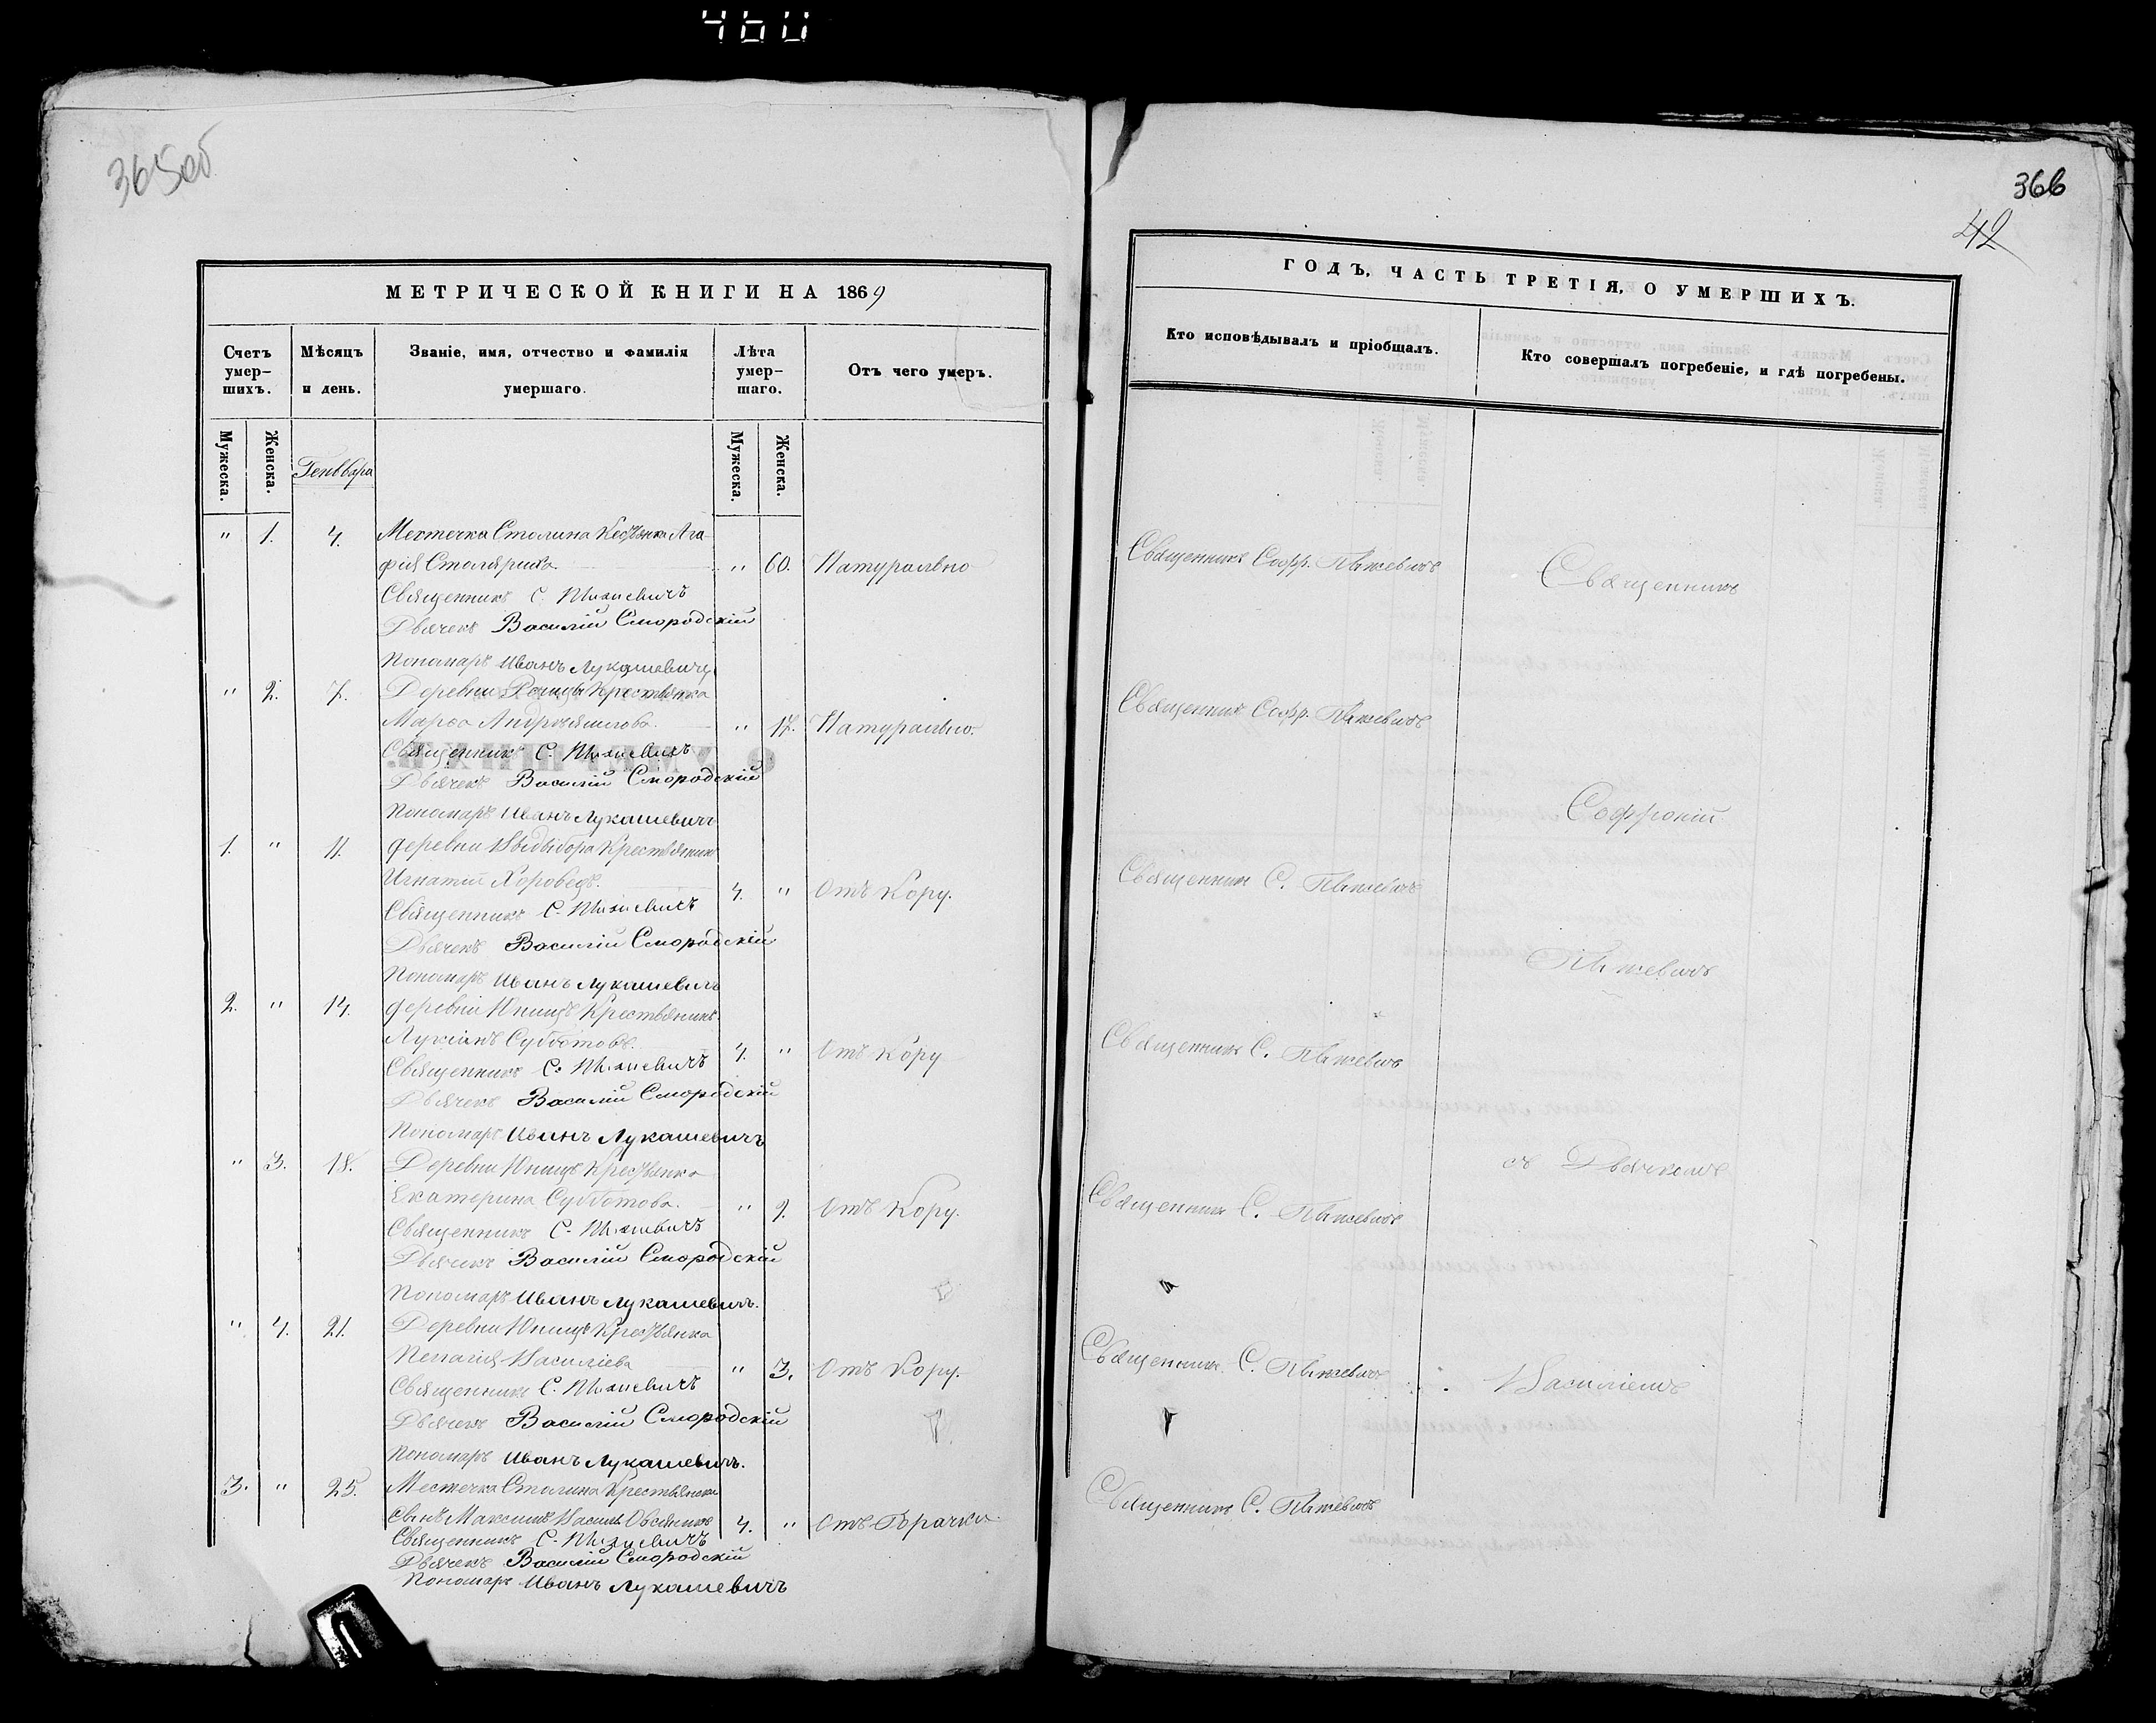 460
365об
МЕТРИЧЕСКОЙ КНИГИ НА 1869
Счетъ умер-шихъ.
Мѣсяцъ и день.
Званіе, имя, отчество и фамилія умершаго.
Лѣта умер-шаго.
Отъ чего умеръ.
Мужеска.
Женска.
Генваря
Мужеска.
Женска.
" 1. 4. Местечка Столина Кестьянка Ага-
фія Столярива. " 60. Натурально
Священникъ С.
Дьячекъ Василій Смородскій
Пономарь Иванъ Лукашевичъ
" 2. 7. Деревни Крестьянка
Марѳа " 17. Натурально.
Священникъ С.
Дьячекъ Василій Смородскій
Пономарь Иванъ Лукашевичъ
1. " 11. деревни Видыбора Крестьянинъ
Игнатій 4. " Отъ Кору.
Священникъ С.
Дьячекъ Василій Смородскій
Пономарь Иванъ Лукашевичъ
2. " 14. деревни Юнищъ Крестьянинъ
Лукіянъ Субботовъ. 4. " Отъ Кору
Священникъ С.
Дьячекъ Василій Смородскій
Пономарь Иванъ Лукашевичъ
" 3. 18. Деревни Юнищъ Крестьянка
Екатерина Субботова. " 2. Отъ Кору.
Священникъ С.
Дьячекъ Василій Смородскій
Пономарь Иванъ Лукашевичъ.
" 4. 21. Деревни Юнищъ Крестьянка
Пелагія Василіева " 3. Отъ Кору.
Священникъ С.
Дьячекъ Василій Смородскій
Пономарь Иванъ Лукашевичъ.
3. " 25. Местечка Столина Крестьянски
Сынъ Максимъ 4. " Отъ Горячки.
Священникъ С.
Дьячекъ Василій Смородскій
Пономарь Иванъ Лукашевичъ
366
42
ГОДЪ, ЧАСТЬ ТРЕТІЯ, О УМЕРШИХЪ.
Кто исповѣдывалъ и пріобщалъ.
Кто совершалъ погребеніе, и гдѣ погребены.
Священникъ Софр.
Священникъ
Священникъ Софр.
Софроній
Священникъ С.
Священникъ С.
съ Дьячкомъ
Священникъ С.
Священникъ С.
Василіемъ
Священникъ С.